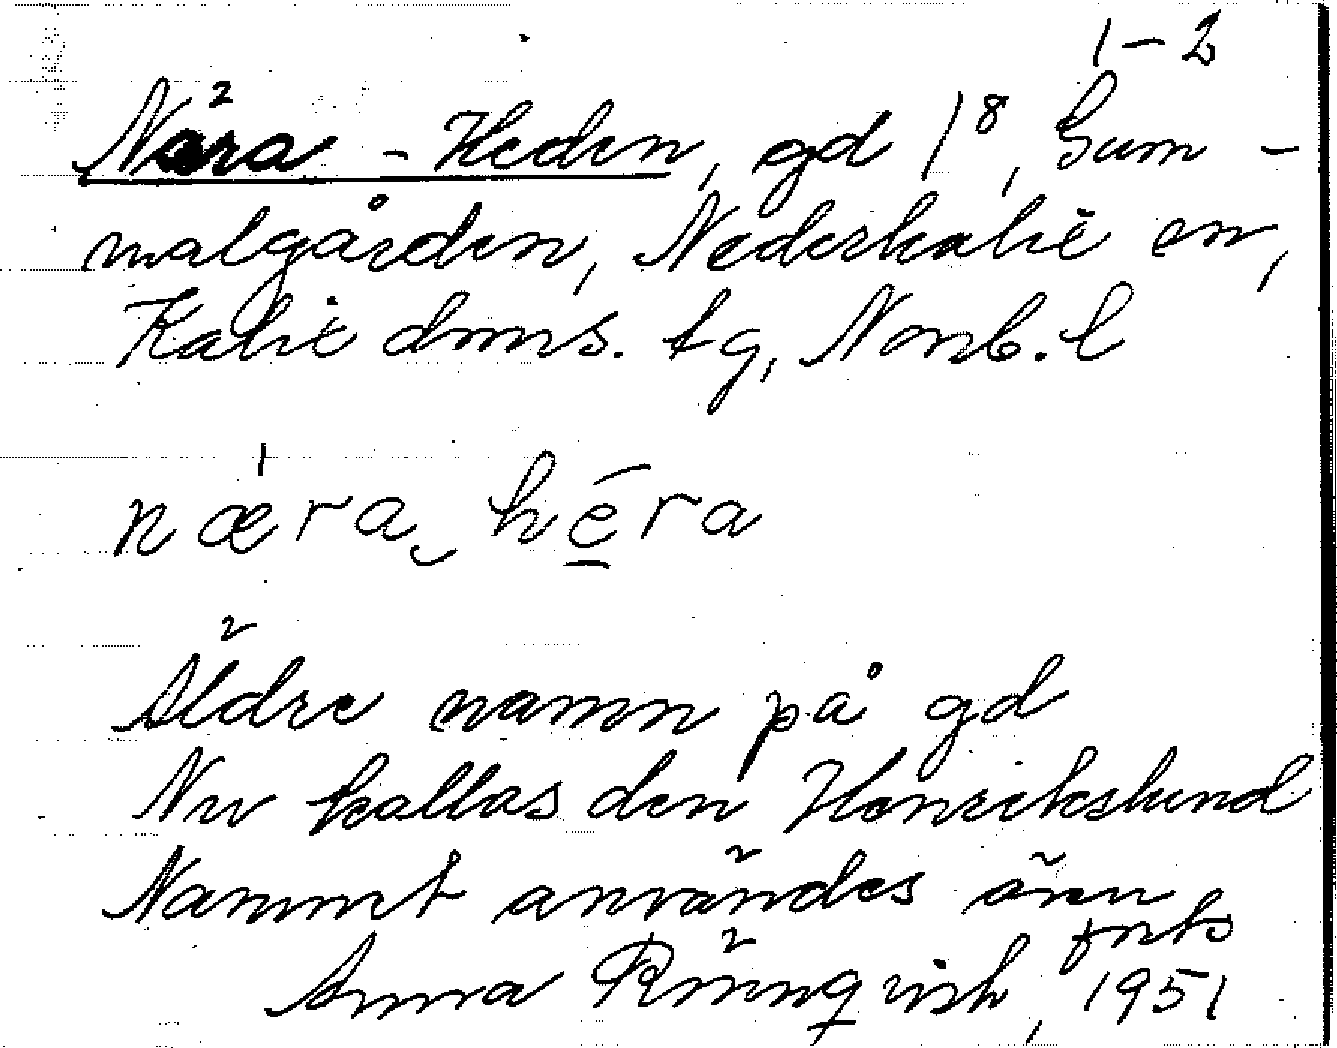 1–2
Nära - Heden, gd 1⁸, Gam -
malgården, Nederkalix sn,
Kalix doms. tg, Norrb. l
næra héra
Äldre namn på gd
Nu kallas den Henrikslund
Namnet användes ännu
forts
Anna Rönnqvist, 1951